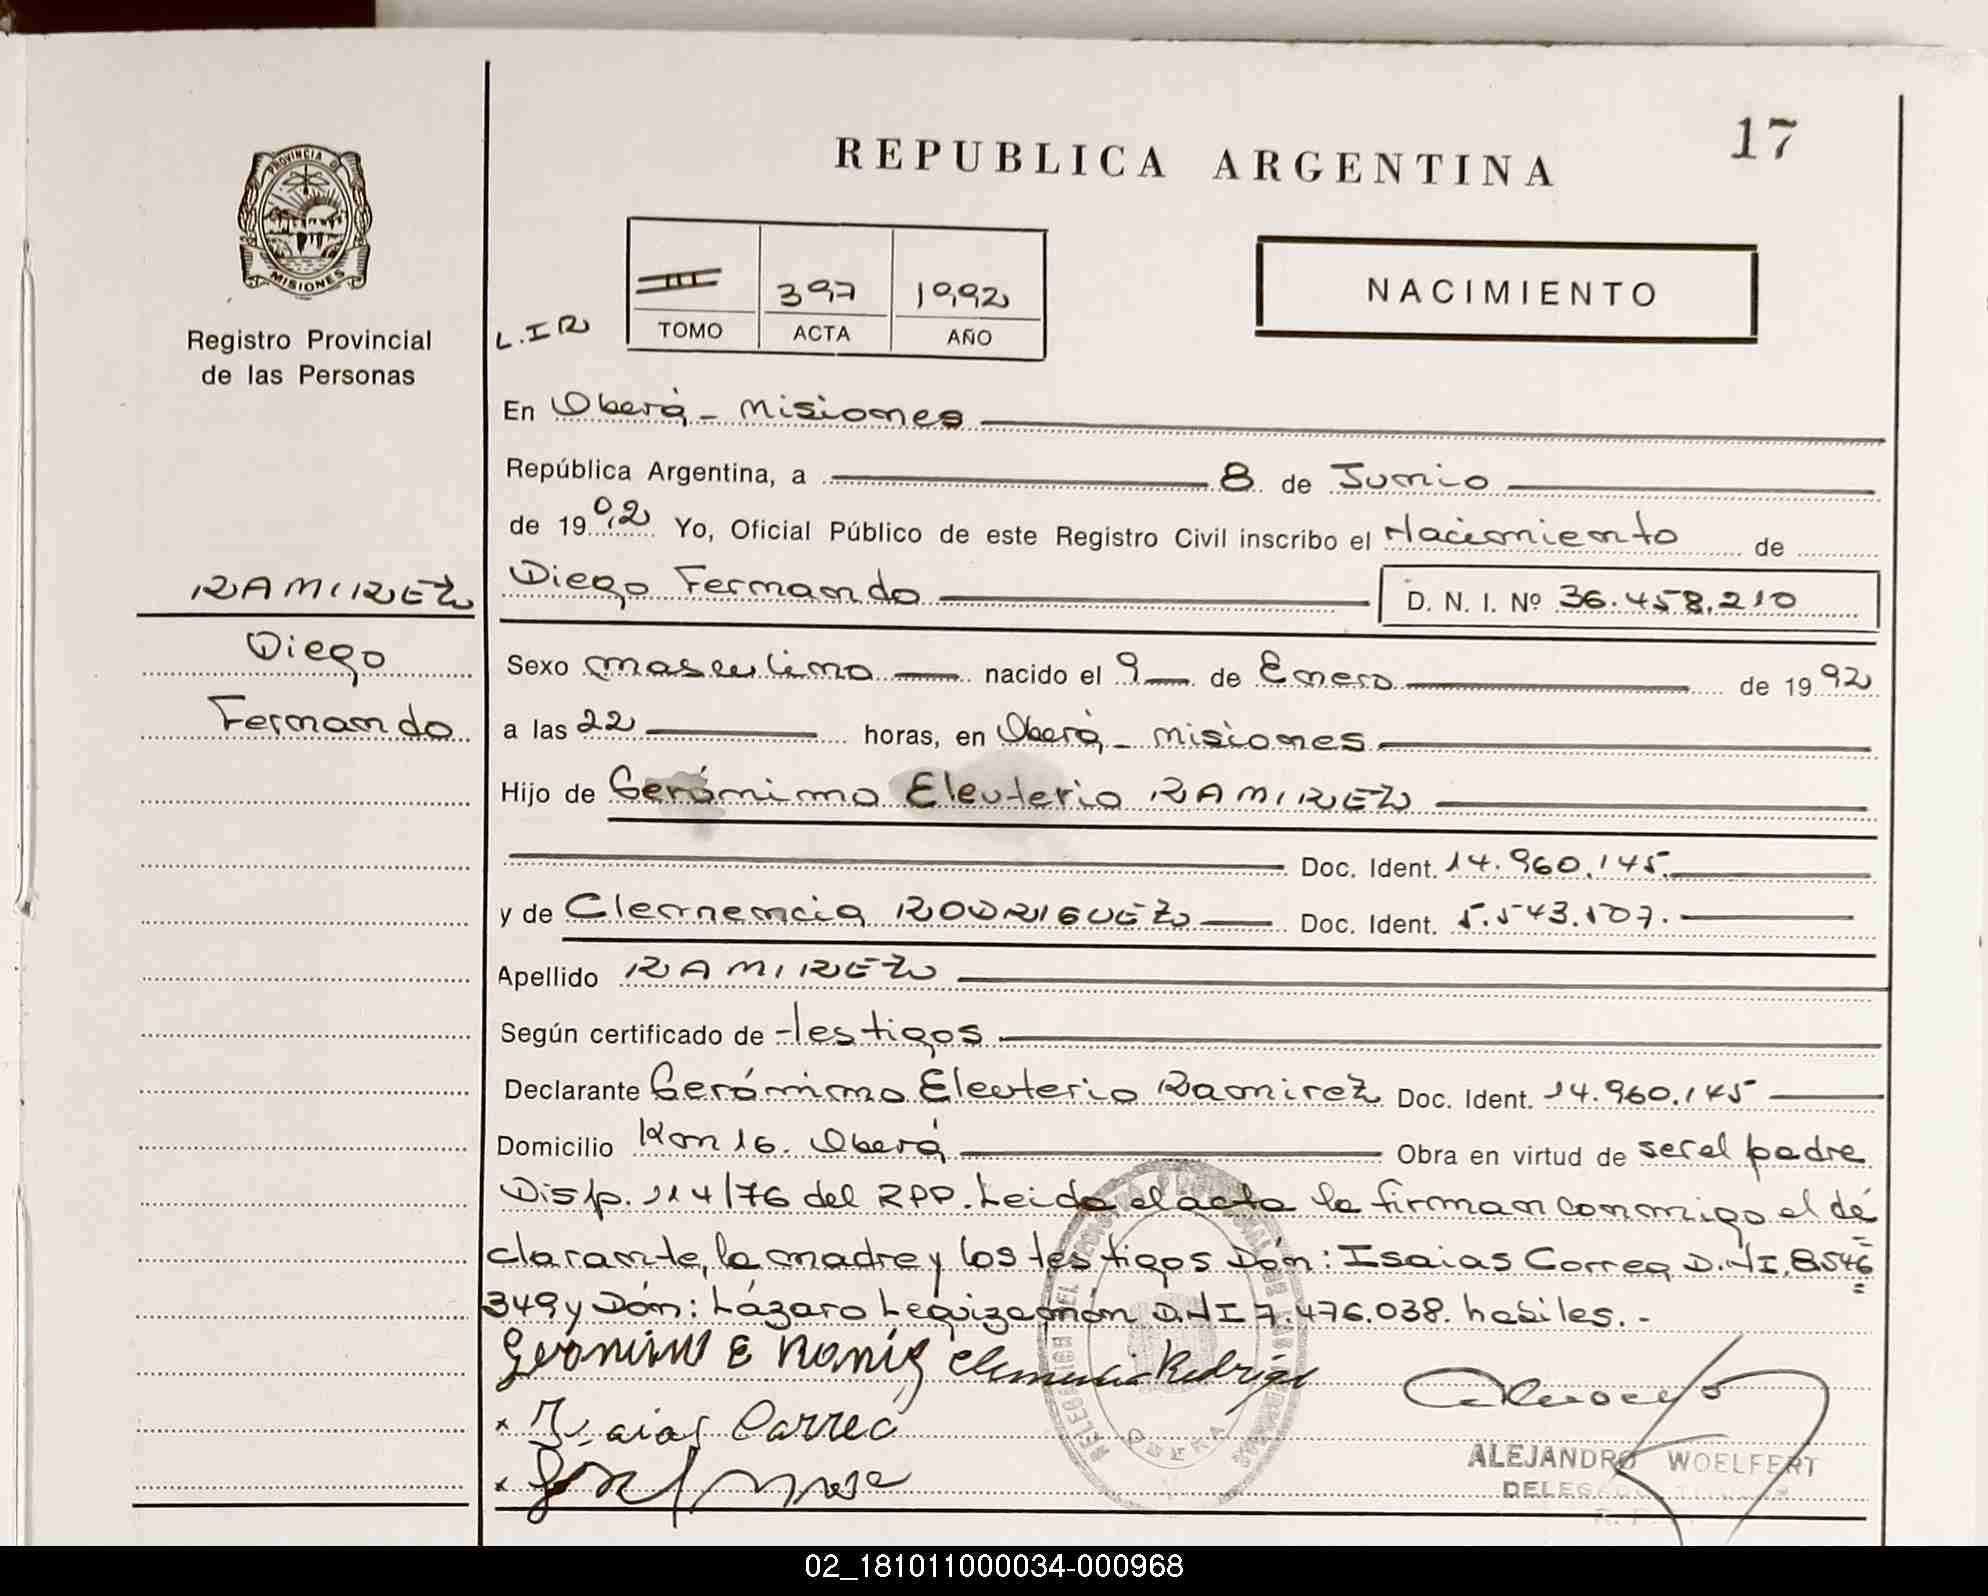 17
REPUBLICA ARGENTINA
PROVINCIA DE
MISIONES
Registro Provincial
de las Personas
NACIMIENTO
III 397 1992
TOMO ACTA AÑO
En Oberá - Misiones
República Argentina, a 8 de Junio
de 1992 Yo, Oficial Público de este Registro Civil inscribo el Nacimiento de
Diego Fernando D. N. I. Nº 36.458.210
RAMIREZ
Diego
Fernando
Sexo masculino nacido el 9 de Enero de 1992
a las 22 horas, en Oberá - Misiones
Hijo de Gerónimo Eleuterio RAMIREZ
Doc. Ident. 14.960.145.
y de Clemencia RODRIGUEZ Doc. Ident. 5.543.507.
Apellido RAMIREZ
Según certificado de testigos
Declarante Gerónimo Eleuterio Ramirez Doc. Ident. 14.960.145
Domicilio Km 16. Oberá Obra en virtud de ser el padre
Disp. 114/76 del RPP. Leida el acta la firman conmigo el de
clarante, la madre y los testigos Dón: Isaias Correa D.N.I. 8.546
349 y Dón: Lázaro Leguizamón D.N.I 7.476.038. habiles.-
Clemencia
x Isaias Correa
x
ALEJANDRO WOELFERT
OBERA
02_181011000034-000968